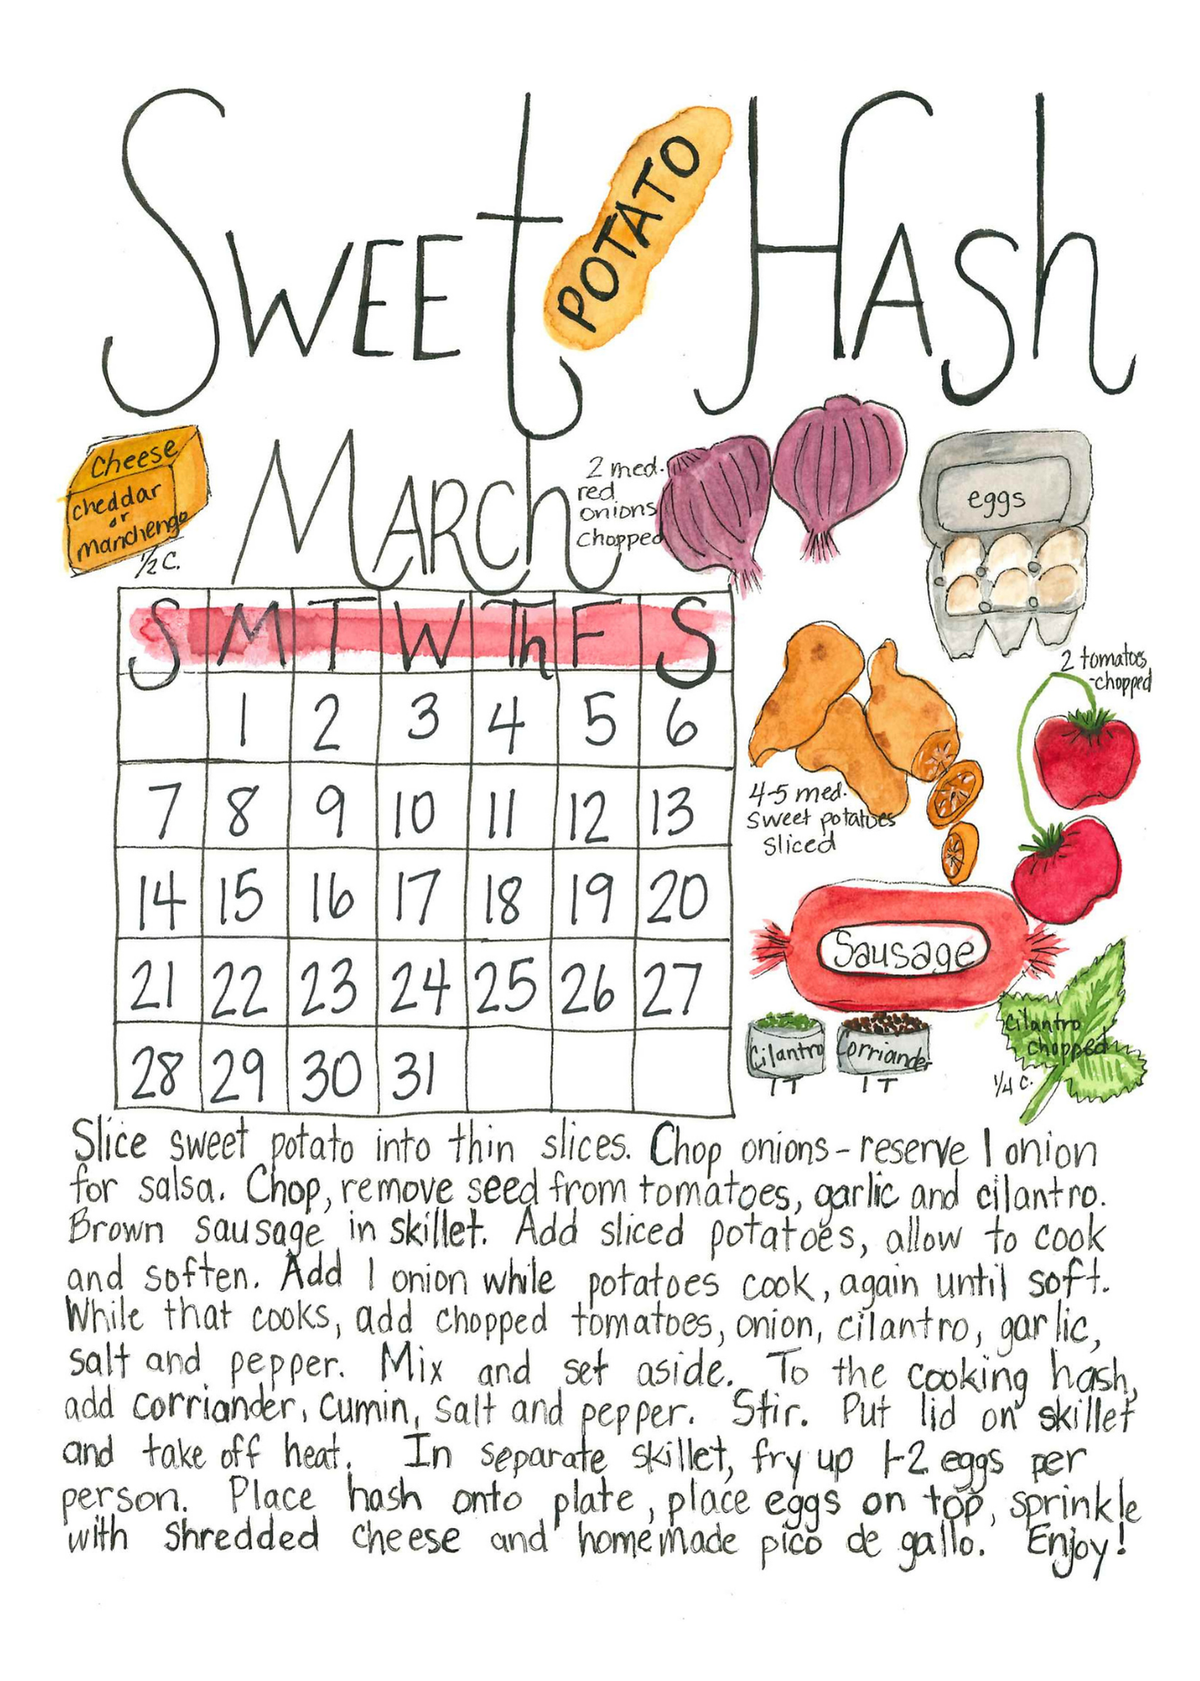 Sweet POTATO Hash
March
Cheese
cheddar
or
manchengo
1/2 C.
2 med.
red
onions
chopped
eggs
S M T W Th F S
1 2 3 4 5 6
7 8 9 10 11 12 13
14 15 16 17 18 19 20
21 22 23 24 25 26 27
28 29 30 31
2 tomatoes
-chopped
4-5 med.
Sweet potatoes
Sliced
Sausage
Cilantro
1 T
Corriander
1 T
Cilantro
chopped
1/4 C.
Slice sweet potato into thin slices. Chop onions - reserve 1 onion
for salsa. Chop, remove seed from tomatoes, garlic and cilantro.
Brown sausage in skillet. Add sliced potatoes, allow to cook
and soften. Add 1 onion while potatoes cook, again until soft.
While that cooks, add chopped tomatoes, onion, cilantro, garlic,
salt and pepper. Mix and set aside. To the cooking hash,
add corriander, cumin, salt and pepper. Stir. Put lid on skillet
and take off heat. In separate skillet, fry up 1-2 eggs per
person. Place hash onto plate, place eggs on top, sprinkle
with shredded cheese and homemade pico de gallo. Enjoy!